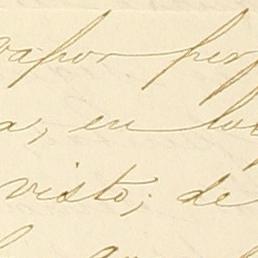 vapor per
a, en lo
visto; de